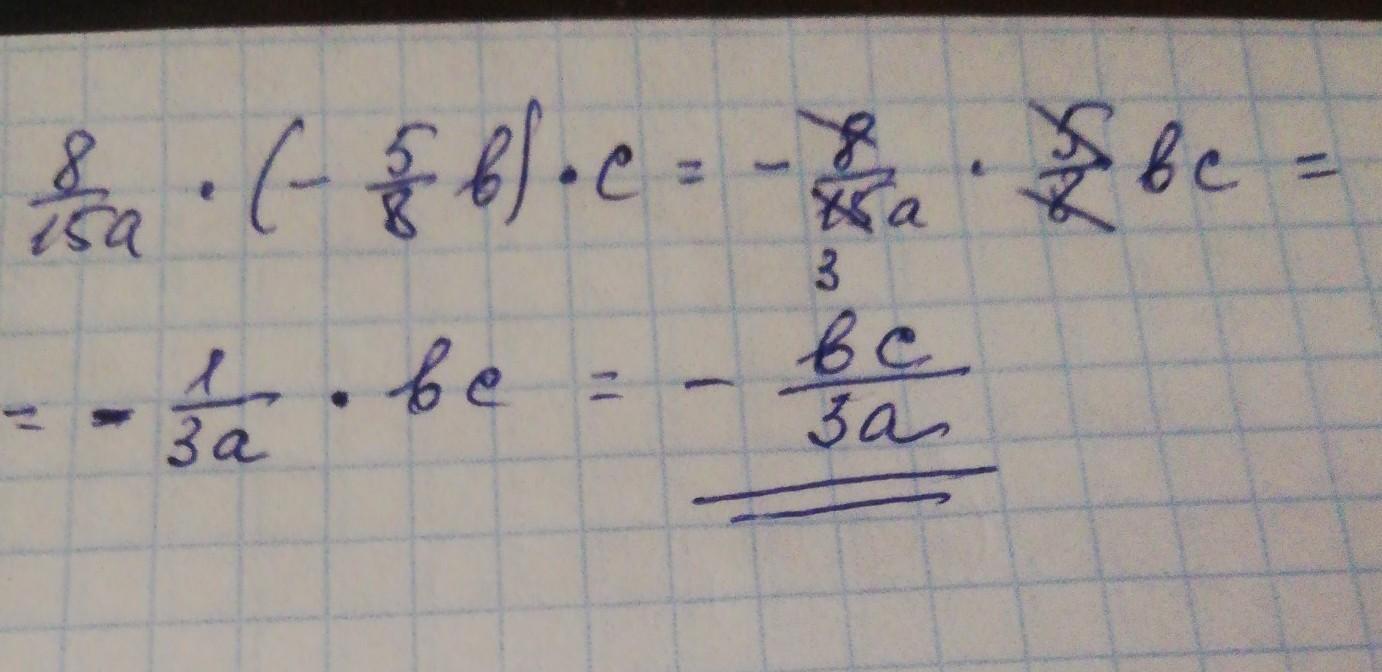 8/15a · (- 5/8 b) · c = - 8/15a · 5/8 bc =
3
= - 1/3a · bc = - bc/3a